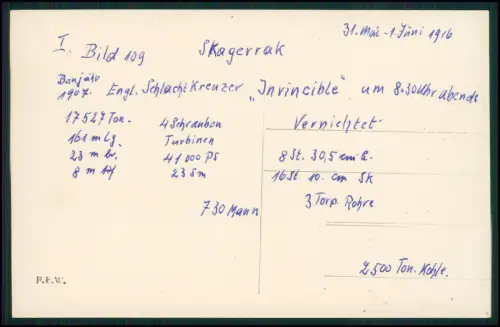 31. Mai - 1. Juni 1916
I. Bild 109 Skagerrak
Baujahr
1907. Engl. Schlachtkreuzer „Invincible" um 8.30 Uhr abends
Vernichtet
17527 Ton. 4 Schrauben
161 m lg. Turbinen
23 m br. 41000 PS
8 m 23 Sm
8 St. 30,5 cm
16 St 10. cm SK
3 Torp. Rohre
730 Mann
2500 Ton. Kohle.
F.&.W.